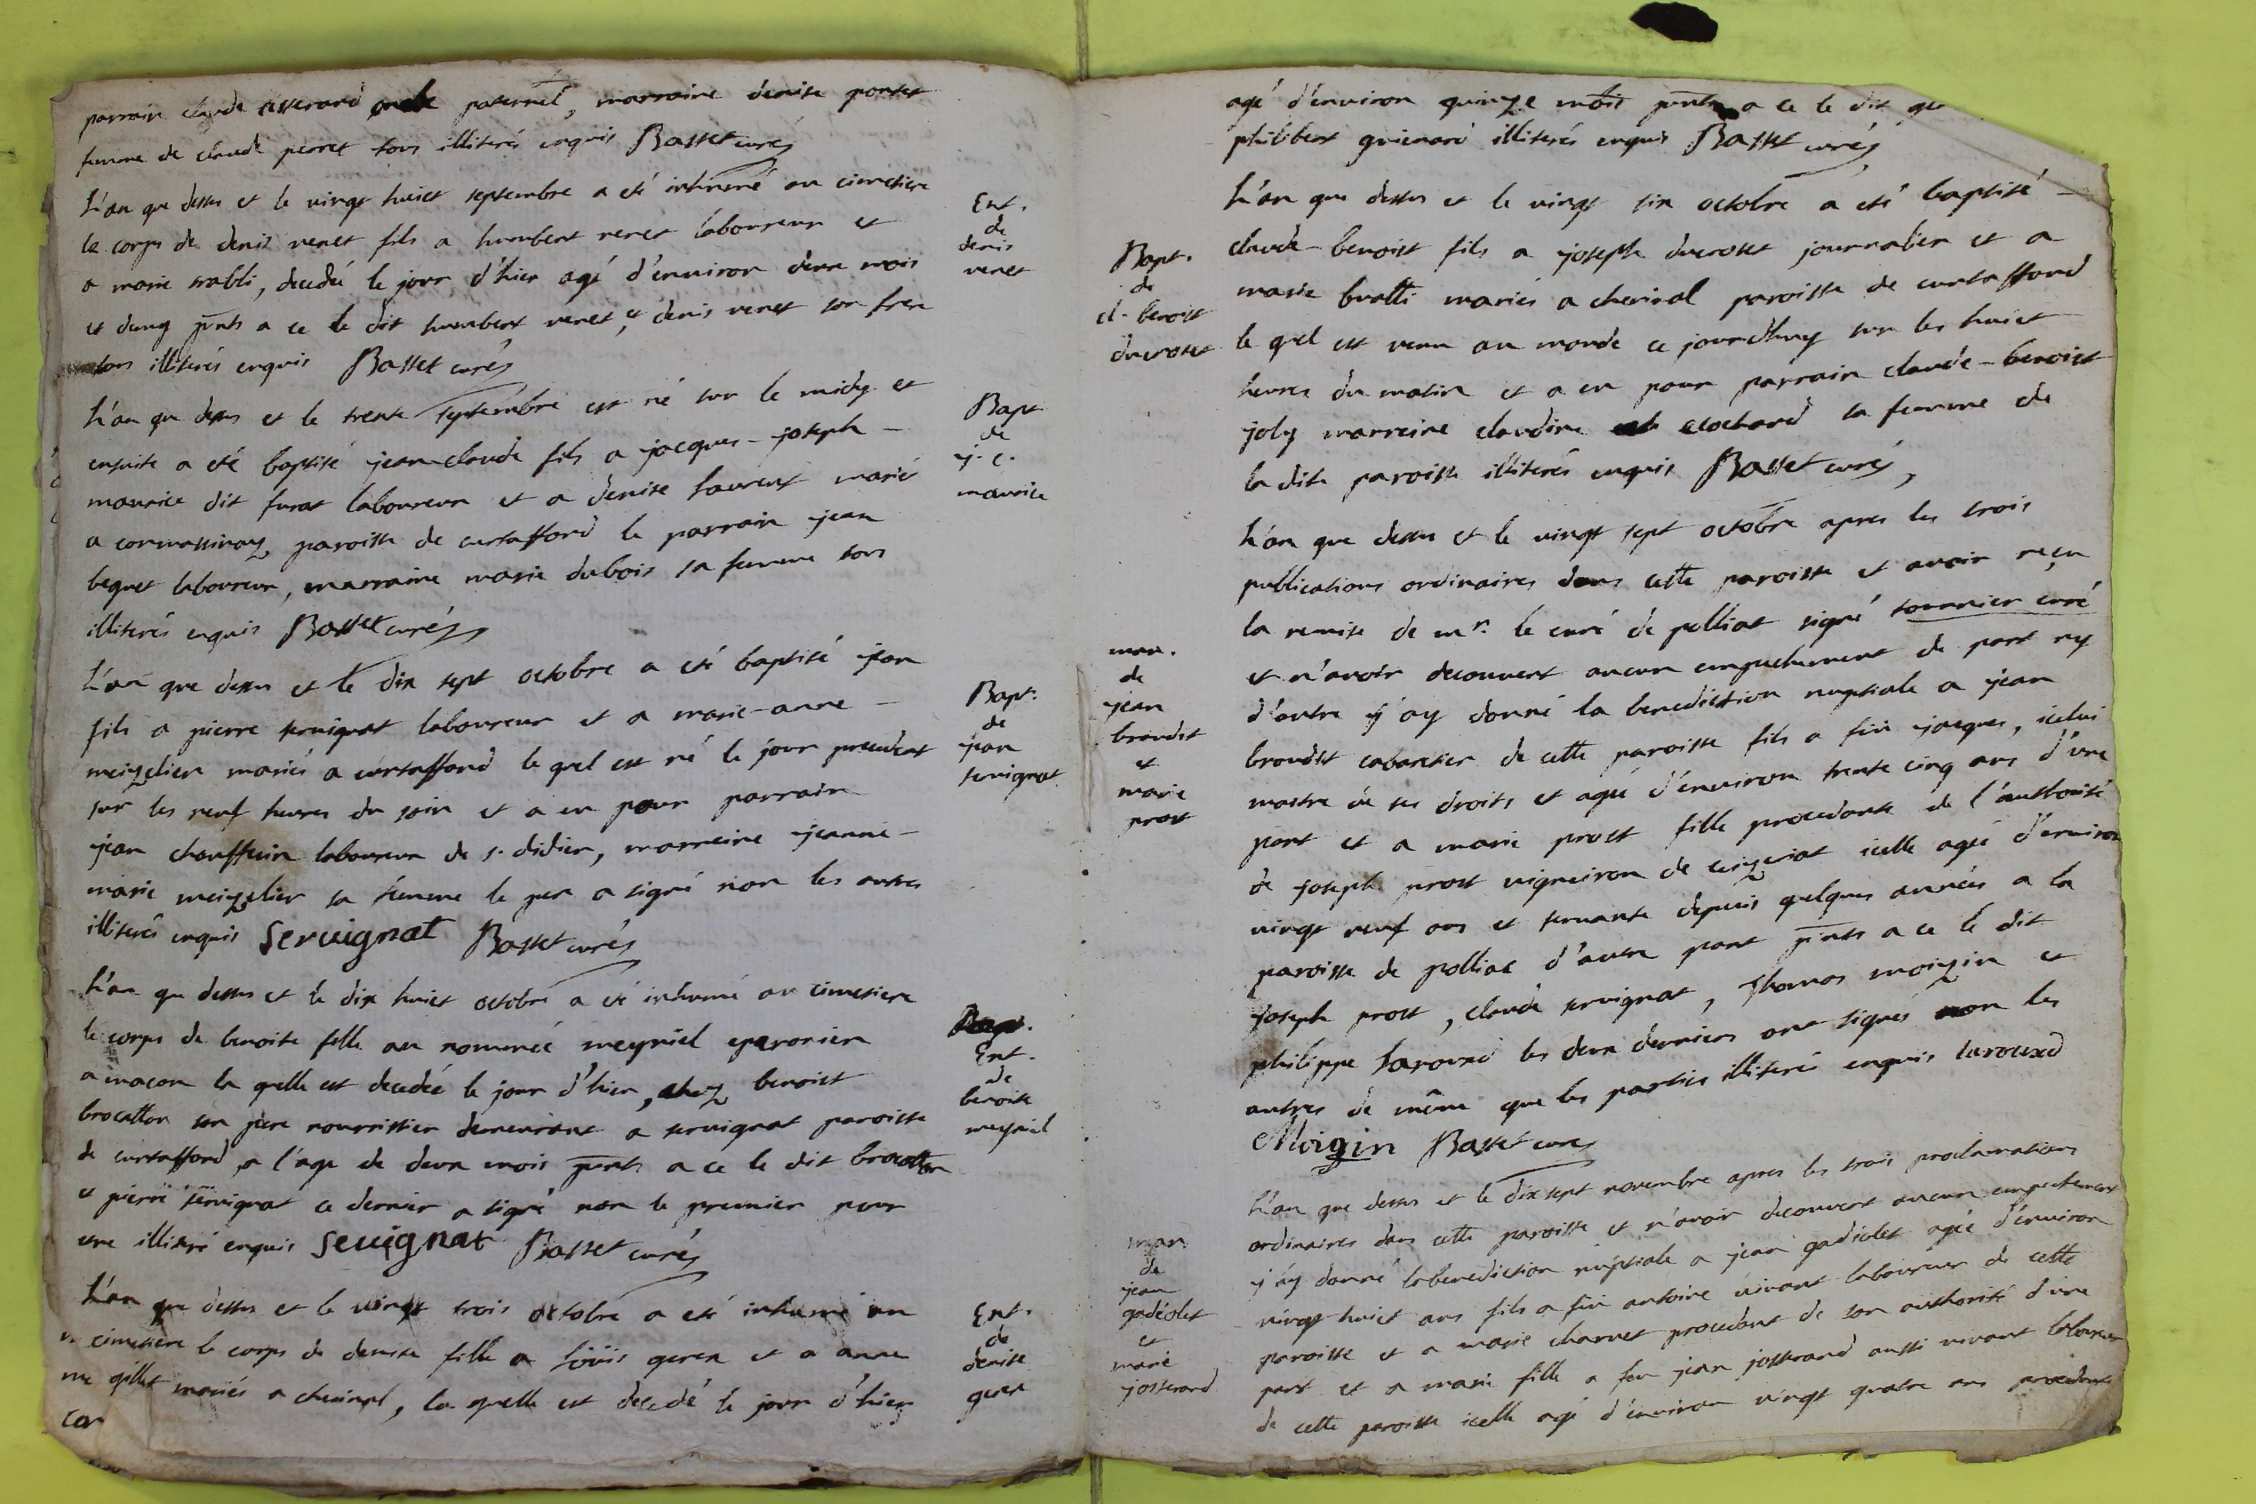 parrain claude asserand oncle paternel, marraine denise
femme de claude perret tous illiterés enquis Basset curé
L'an que dessus et le vingt huict septembre a eté inhumé au cimetiere
le corps de denis venet fils a humbert venet laboureur et
a marie, decedé le jour d'hier agé d'environ deux mois
et demy pnts a ce le dit humbert venet, et denis venet son frere
tous illiterés enquis Basset curé
Ent.
de
denis
venet
L'an que dessus et le trente septembre est né sur le midy et
ensuite a eté baptisé jean-claude fils a jacques-joseph
maurice dit furat laboureur et a denise mariés
a cormassinay paroisse de curtaffond le parrain jean
beguet laboureur, marraine marie dubois sa femme tous
illiterés enquis Basset curé
Bapt
de
j. c.
maurice
L'an que dessus et le dix sept octobre a eté baptisé jean
fils a pierre servignat laboureur et a marie-anne
meizelier mariés a curtaffond le quel est né le jour precedent
sur les neuf heures du soir et a eu pour parrain
jean chauffurin laboureur de s. didier, marreine jeanne-
marie meizelier sa femme le per a signé non les autres
illiterés enquis Servignat Basset curé
Bapt.
de
jean
servignat
L'an que dessus et le dix huict octobre a eté inhumé au cimetiere
le corps de benoite fille au nommée meyniel eperonier
a macon la quelle est decedée le jour d'hier, chez benoist
brocatton son pere nourrissier demeurant a servignat paroisse
de curtaffond, a l'age de deux mois pnts a ce le dit brocatton
et pierre servignat ce dernier a signé non le premier pour
etre illiteré enquis Sevignat Basset curé
Ent.
de
benoite
meyniel
L'an que dessus et le vingt trois octobre a eté inhumé au
cimetiere le corps de denise fille a loüis geren et a anne
gillet mariés a cheviral, la quelle est decedé le jour d'hier
Ent.
de
denise
geren
agé d'environ quinze mois pnts a ce le dit
philibert guienard illiterés enquis Basset curé
L'an que dessus et le vingt six octobre a eté baptisé
claude-benoist fils a joseph ducroset journalier et a
marie buatti mariés a cheviral paroisse de curtaffond
le quel est venu au monde ce jourdhuy sur les huict
heures du matin et a eu pour parrain claude-benoist
joly marreine claudine cochard sa femme de
la dite paroisse illiterés enquis Basset curé
Bapt.
de
cl. benoist
ducroset
L'an que dessus et le vingt sept octobre apres les trois
publications ordinaires dans cette paroisse et avoir reçu
la remise de mr. le curé de polliat signé tournier curé
et n'avoir decouvert aucun empechement de part ny
d'autre j'ay donné la benediction nuptiale a jean
broudet cabaretier de cette paroisse fils a feu jacques, icelui
maitre de ses droits et agé d'environ trente cinq ans d'une
part et a marie prost fille procedante de l'authorité
de joseph prost vigneiron de ceyzeriat icelle agée d'environ
vingt neuf ans et servante depuis quelques années a la
paroisse de polliat d'autre part pnts a ce le dit
joseph prost, claude servignat, Thomas moizin et
philippe laroixd les deux derniers ont signés non les
autres de même que les parties illiteré enquis laroixd
Moizin Basset curé
mar.
de
jean
broudet
et
marie
prost
L'an que dessus et le dix sept novembre apres les trois proclamations
ordinaires dans cette paroisse et n'avoir decouvert aucun empechement
j'ay donné la benediction nuptiale a jean gadiolet agée d'environ
vingt huict ans fils a feu antoine vivant laboureur de cette
paroisse et a marie charvet procedant de son authorité d'une
part et a marie fille a feu jean josserand aussi vivant laboureur
de cette paroisse icelle agé d'environ vingt quatre ans procedante
mar.
de
jean
gadéolet
et
marie
josserand